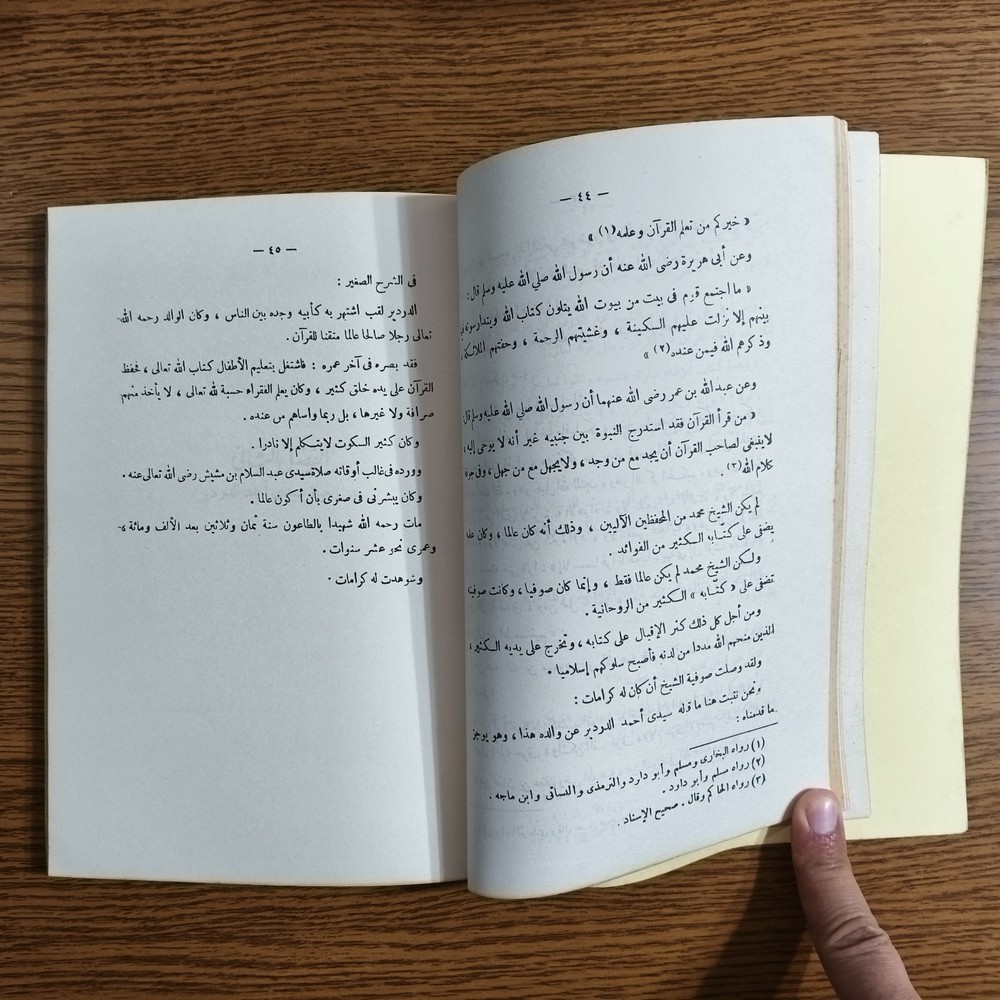 — ٤٤ —
« خيركم من تعلم القرآن وعلمه(١) »
وعن أبى هريرة رضى الله عنه أن رسول الله صلي الله عليه وسلم قال :
« ما اجتمع قوم فى بيت من بيوت الله يتلون كتاب الله ويتدارسونه
بينهم إلا نزلت عليهم السكينة ، وغشيتهم الرحمة ، وحفتهم الملائكة
وذكرهم الله فيمن عنده(٢) »
وعن عبد الله بن عمر رضى الله عنهما أن رسول الله صلي الله عليه وسلم قال
« من قرأ القرآن فقد استدرج النبوة بين جنبيه غير أنه لا يوحى إليه ،
لاينبغى لصاحب القرآن أن يجد مع من وجد ، ولايجهل مع من جهل ، وفى جوفه
كلام الله(٣)
لم يكن الشيخ محمد من المحفظين الآليين ، وذلك أنه كان عالما ، وكان علمه
يضفى على كتّابه الكثير من الفوائد .
ولكن الشيخ محمد لم يكن عالما فقط ، وإنما كان صوفيا ، وكانت صوفيته
تضفى على « كتّابه » الكثير من الروحانية .
ومن أجل كل ذلك كثر الإقبال على كتابه ، وتخرج على يديه الكثير ،
الذين منحهم الله مددا من لدنه فأصبح سلوكهم إسلاميا .
ولقد وصلت صوفية الشيخ أن كان له كرامات :
ونحن نثبت هنا ما قاله سيدى أحمد الدردير عن والده هذا ، وهو يوجز
ما قدمناه :
(١) رواه البخارى ومسلم وأبو دارد والترمذى والنسائى وابن ماجه .
(٢) رواه مسلم وأبو دارد .
(٣) رواه الحاكم وقال . صحيح الإسناد .
— ٤٥ —
فى الشرح الصغير :
الدردير لقب اشتهر به كأبيه وجده بين الناس ، وكان الوالد رحمه الله
تعالى رجلا صالحا عالما متقنا للقرآن .
فقد بصره فى آخر عمره : فاشتغل بتعليم الأطفال كتاب الله تعالى ، فحفظ
القرآن على يده خلق كثير ، وكان يعلم الفقراء حسبة لله تعالى ، لا يأخذ منهم
صرافة ولا غيرها ، بل ربما واساهم من عنده .
وكان كثير السكوت لايتكلم إلا نادرا .
وورده فى غالب أوقاته صلاة سيدى عبد السلام بن مشيش رضى الله تعالى عنه .
وكان يبشرنى فى صغرى بأن أكون عالما .
مات رحمه الله شهيدا بالطاعون سنة ثمان وثلاثين بعد الألف ومائة ،
وعمرى نحو عشر سنوات .
وشوهدت له كرامات .